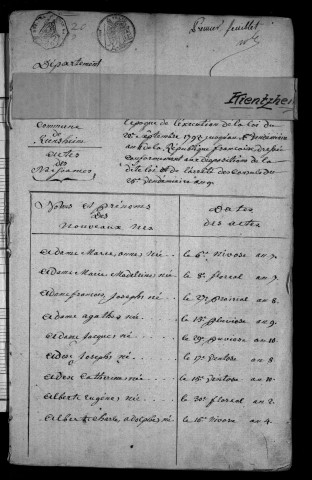 Premier feuillet
Département
Kientzhei
l'époque de l'exécution de la loi du
20 Septembre 1792 jusqu'au 1er Vendémiaire
Commune
de
Kiensheim
an de la République française, dressée
conformément aux dispositions de la
actes
des
Naissances
dite loi et de l'arrêté des Consuls du
25 Vendémiaire an 9.
Noms et Prénoms
des
Nouveaux nés
Dates
des actes
Adam Marie anne née le 6e. nivose an 7.
Adam Marie Madeleine née le 8e. floréal an 7.
Adam françois Joseph né le 27e. prairial an 8.
Adam agathe née le 13e. pluviose an 9.
Adam Jacques né le 29e. pluviose an 10.
Aden Joseph né le 17e. Ventose an 8.
Aden Catherine née le 18e. Ventose an 10.
Albert Eugène né le 30e. floréal an 2.
Albert charles adolphe né le 16e. nivose an 4.